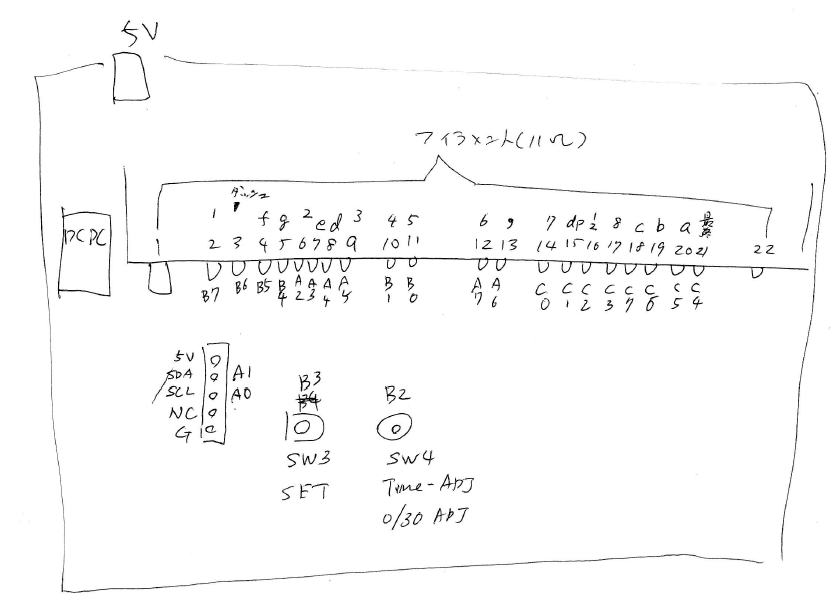 5V
フィラメント(11Ω)
ダッシュ
1 ' f g 2 e d 3 4 5 6 9 7 dp 1/2 8 c b a 最終
1 2 3 4 5 6 7 8 9 10 11 12 13 14 15 16 17 18 19 20 21 22
DCDC
B7 B6 B5 B4 A2 A3 A4 A5 B1 B0 A7 A6 C0 C1 C2 C3 C7 C6 C5 C4
5V
SDA A1
SCL A0
NC
G
B3
B2
SW3
SET
SW4
Time-ADJ
0/30 ADJ